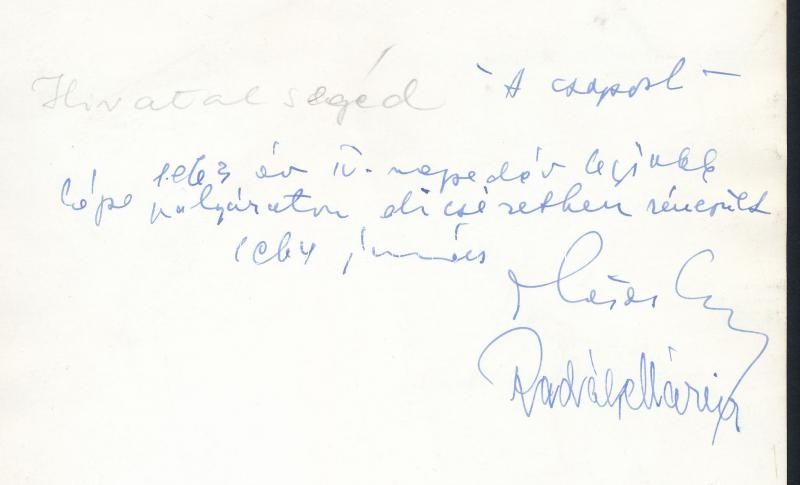 Hivatalsegéd "A csapost"
1963 év IV. negyedév legjobb
képe pályázaton dicséretben részesült
1964 január
Radák Mária